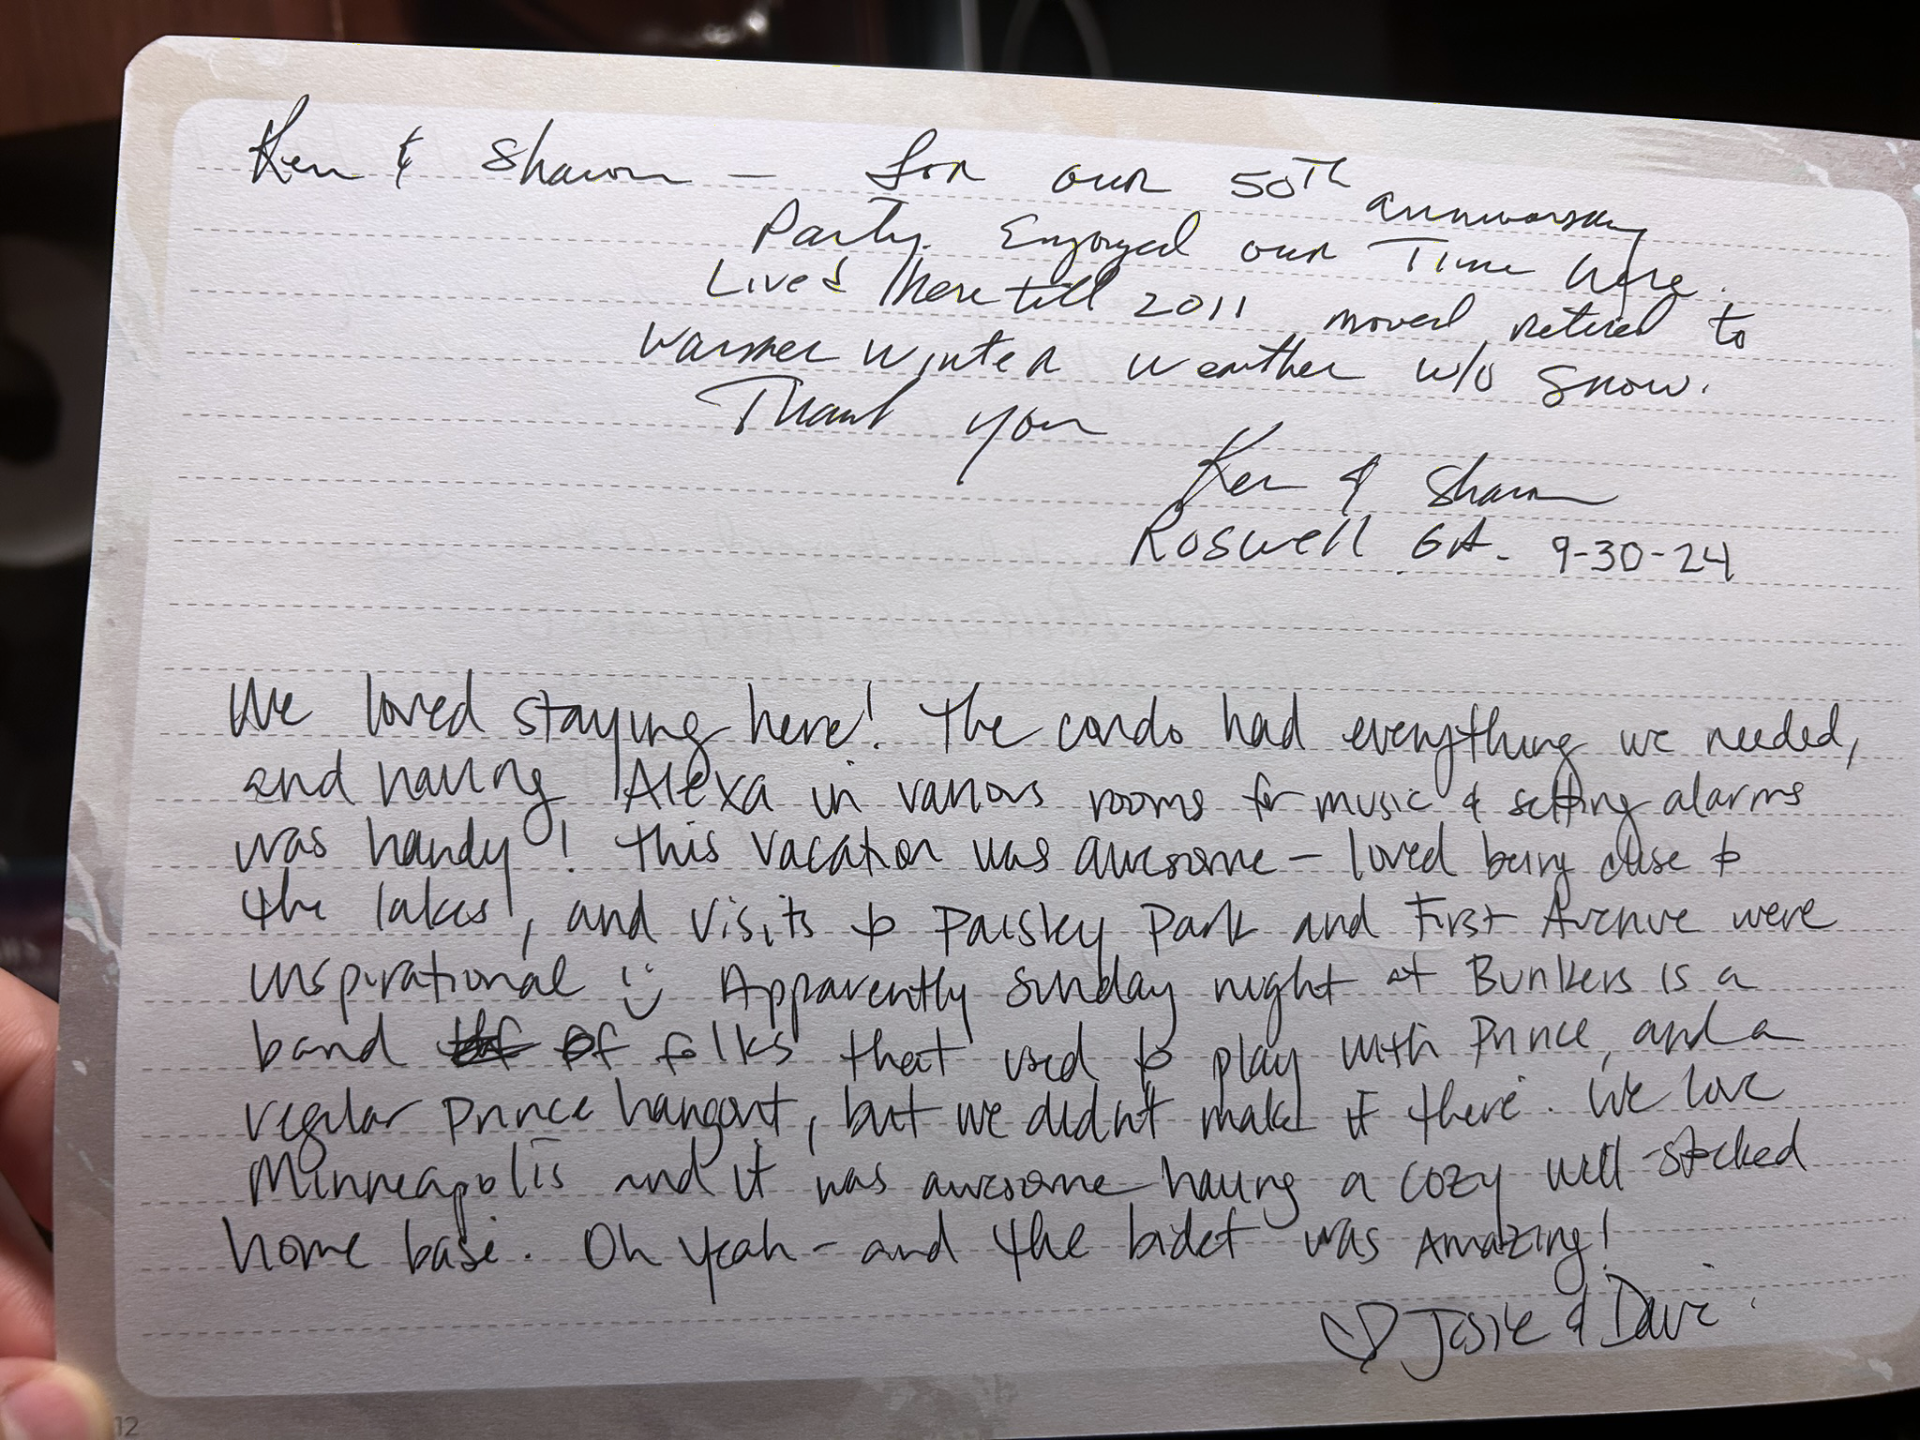 Ken & Sharon — for our 50Th anniversary
Party. Enjoyed our Time here.
Lived there till 2011, moved, retired to
warmer winter weather w/o snow.
Thank you
Ken & Sharon
Roswell GA. 9-30-24
We loved staying here! The condo had everything we needed,
and having Alexa in various rooms for music & setting alarms
was handy! This vacation was awesome — loved being close to
the lakes, and visits to Paisley Park and First Avenue were
inspirational :) Apparently Sunday night at Bunkers is a
band of folks that used to play with Prince, and a
regular Prince hangout, but we didn't make it there. We love
Minneapolis and it was awesome having a cozy well-stocked
home base. Oh yeah - and the bidet was Amazing!
♡ Josie & Dave
12